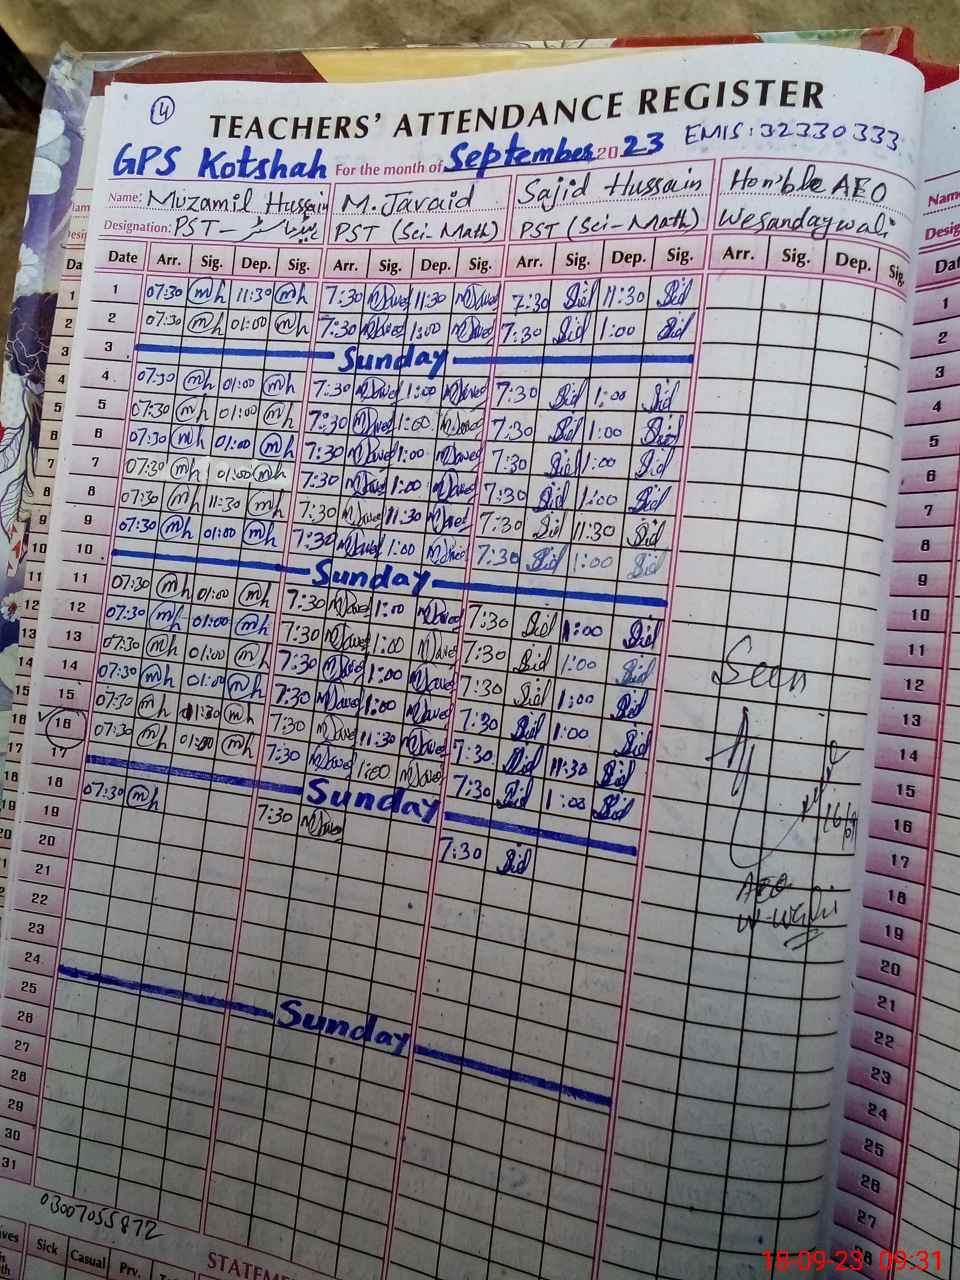 4
TEACHERS' ATTENDANCE REGISTER
EMIS: 32330333
GPS Kotshah For the month of September 2023
Name: Muzamil Hussain M. Javaid Sajid Hussain Hon'ble AEO
Designation: PST- PST (Sci-Math) PST (Sci-Math) Wesandaywali
Date Arr. Sig. Dep. Sig. Arr. Sig. Dep. Sig. Arr. Sig. Dep. Sig. Arr. Sig. Dep. Sig.
1 07:30 mh 11:30 mh 7:30 MJaved 11:30 MJaved 7:30 Sid 11:30 Sid
2 07:30 mh 01:00 mh 7:30 MJaved 1:00 MJaved 7:30 Sid 1:00 Sid
3 Sunday
4 07:30 mh 01:00 mh 7:30 MJaved 1:00 MJaved 7:30 Sid 1:00 Sid
5 07:30 mh 01:00 mh 7:30 MJaved 1:00 MJaved 7:30 Sid 1:00 Sid
6 07:30 mh 01:00 mh 7:30 MJaved 1:00 MJaved 7:30 Sid 1:00 Sid
7 07:30 mh 01:00 mh 7:30 MJaved 1:00 MJaved 7:30 Sid 1:00 Sid
8 07:30 mh 11:30 mh 7:30 MJaved 11:30 MJaved 7:30 Sid 11:30 Sid
9 07:30 mh 01:00 mh 7:30 MJaved 1:00 MJaved 7:30 Sid 1:00 Sid
10 Sunday
11 07:30 mh 01:00 mh 7:30 MJaved 1:00 MJaved 7:30 Sid 1:00 Sid
12 07:30 mh 01:00 mh 7:30 MJaved 1:00 MJaved 7:30 Sid 1:00 Sid
13 07:30 mh 01:00 mh 7:30 MJaved 1:00 MJaved 7:30 Sid 1:00 Sid
14 07:30 mh 01:00 mh 7:30 MJaved 1:00 MJaved 7:30 Sid 1:00 Sid
15 07:30 mh 11:30 mh 7:30 MJaved 11:30 MJaved 7:30 Sid 11:30 Sid
16 07:30 mh 01:00 mh 7:30 MJaved 1:00 MJaved 7:30 Sid 1:00 Sid
17 Sunday
18 07:30 mh 7:30 MJaved 7:30 Sid
19
20
21
22
23
24 Sunday
25
26
27
28
29
30
31
Seen
16/09
AEO
W-Wali
03007055872
Sick Casual Prv.
STATEM
18-09-23 09:31